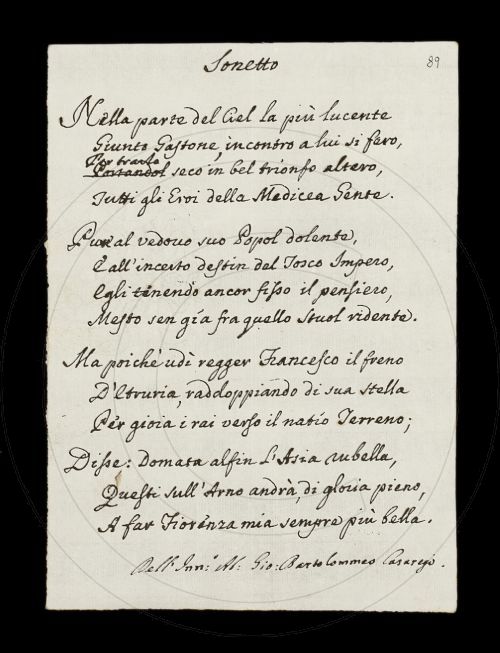 Sonetto
89
Nella parte del Ciel la più lucente
Giunto Gastone, incontro a lui si fero,
Per trarlo
Portandol seco in bel trionfo altero,
Tutti gli Eroi della Medicea Gente.
Pur al vedovo suo Popol dolente,
E all'incerto destin del Tosco Impero,
Egli tenendo ancor fisso il pensiero,
Mesto sen gía fra quello stuol ridente.
Ma poichè udì regger Francesco il freno
D'Etruria, raddoppiando di sua stella
Per gioia i rai verso il natio Terreno;
Disse: Domata alfin l'Asia rubella,
Questi sull'Arno andrà, di gloria pieno,
A far Fiorenza mia sempre più bella.
Dell' Gio: Bartolommeo Casaregi.